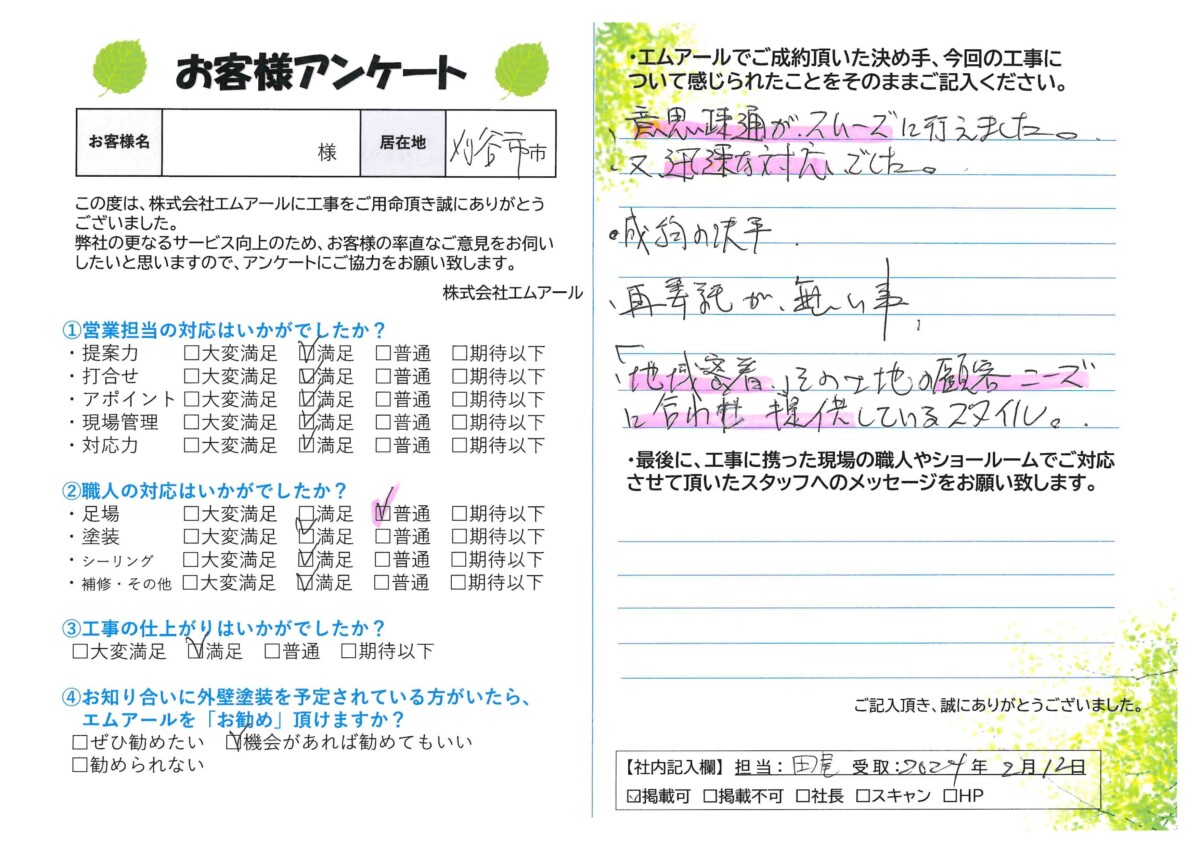 お客様アンケート
お客様名 様 居在地 刈谷市市
この度は、株式会社エムアールに工事をご用命頂き誠にありがとう
ございました。
弊社の更なるサービス向上のため、お客様の率直なご意見をお伺い
したいと思いますので、アンケートにご協力をお願い致します。
株式会社エムアール
①営業担当の対応はいかがでしたか？
・提案力 □大変満足 ☑満足 □普通 □期待以下
・打合せ □大変満足 ☑満足 □普通 □期待以下
・アポイント □大変満足 ☑満足 □普通 □期待以下
・現場管理 □大変満足 ☑満足 □普通 □期待以下
・対応力 □大変満足 ☑満足 □普通 □期待以下
②職人の対応はいかがでしたか？
・足場 □大変満足 □満足 ☑普通 □期待以下
・塗装 □大変満足 ☑満足 □普通 □期待以下
・シーリング □大変満足 ☑満足 □普通 □期待以下
・補修・その他 □大変満足 ☑満足 □普通 □期待以下
③工事の仕上がりはいかがでしたか？
□大変満足 ☑満足 □普通 □期待以下
④お知り合いに外壁塗装を予定されている方がいたら、
エムアールを「お勧め」頂けますか？
□ぜひ勧めたい ☑機会があれば勧めてもいい
□勧められない
・エムアールでご成約頂いた決め手、今回の工事に
ついて感じられたことをそのままご記入ください。
、意思疎通が、スムーズに行えました。
、又、迅速な対応でした。
・成約の決手
、再委託が、無い事、
「地域密着」その土地の顧客ニーズ
に合わせ 提供しているスタイル。
・最後に、工事に携った現場の職人やショールームでご対応
させて頂いたスタッフへのメッセージをお願い致します。
ご記入頂き、誠にありがとうございました。
【社内記入欄】 担当：田尾 受取：2024年 2月12日
☑掲載可 □掲載不可 □社長 □スキャン □HP